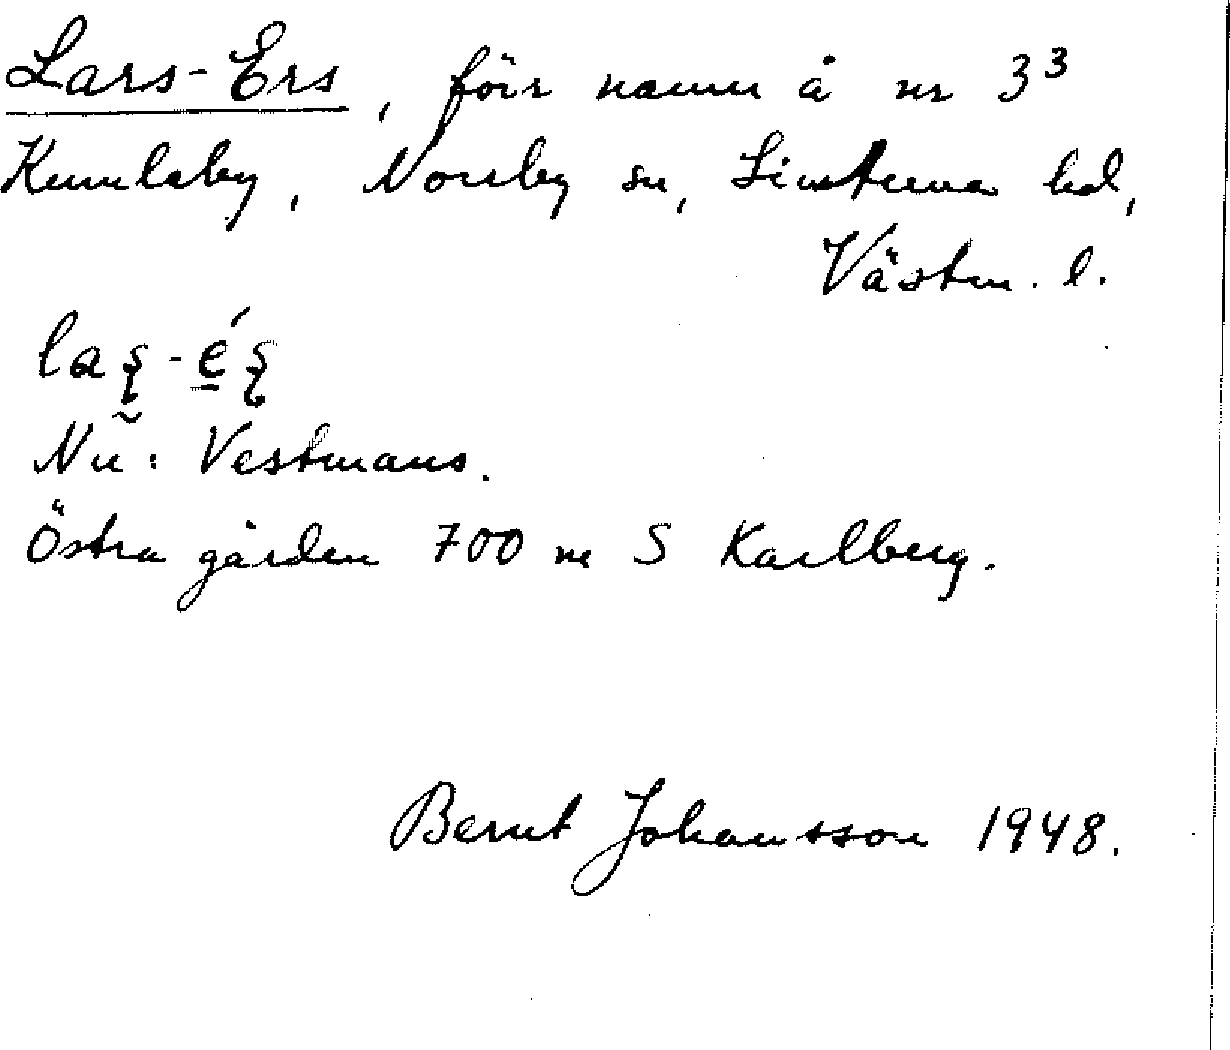 Lars-Ers, förr namn å nr 3³
Kumlaby, Norrby sn, Simtuna hd,
Västm. l.
Nu: Vestmans.
Östra gården 700 m S Karlberg.
Bernt Johansson 1948.